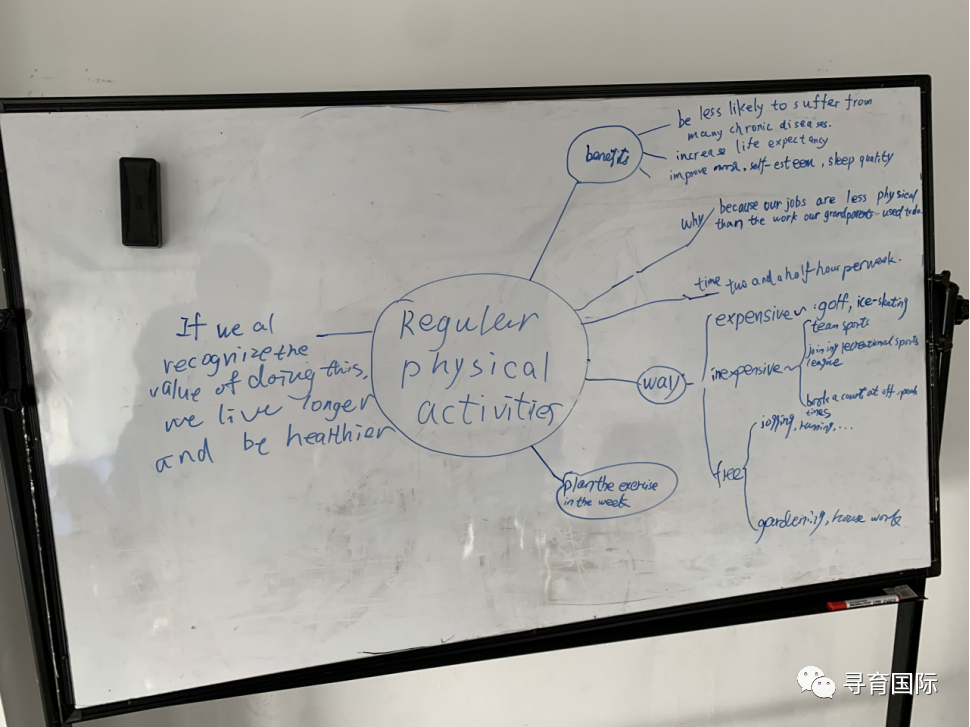 benefits
be less likely to suffer from
many chronic diseases.
increase life expectancy
improve mood, self-esteem, sleep quality
why
because our jobs are less physical
than the work our grandparents used to do.
time two and a half-hour per week.
Regular
physical
activities
If we al
recognize the
value of doing this,
we live longer
and be healthier
way
expensive : golf, ice-skating
inexpensive
team sports
joining recreational sports
league
book a court at off-peak
times
free
jogging, running, ...
gardening, house work
plan the exercise
in the week
寻育国际